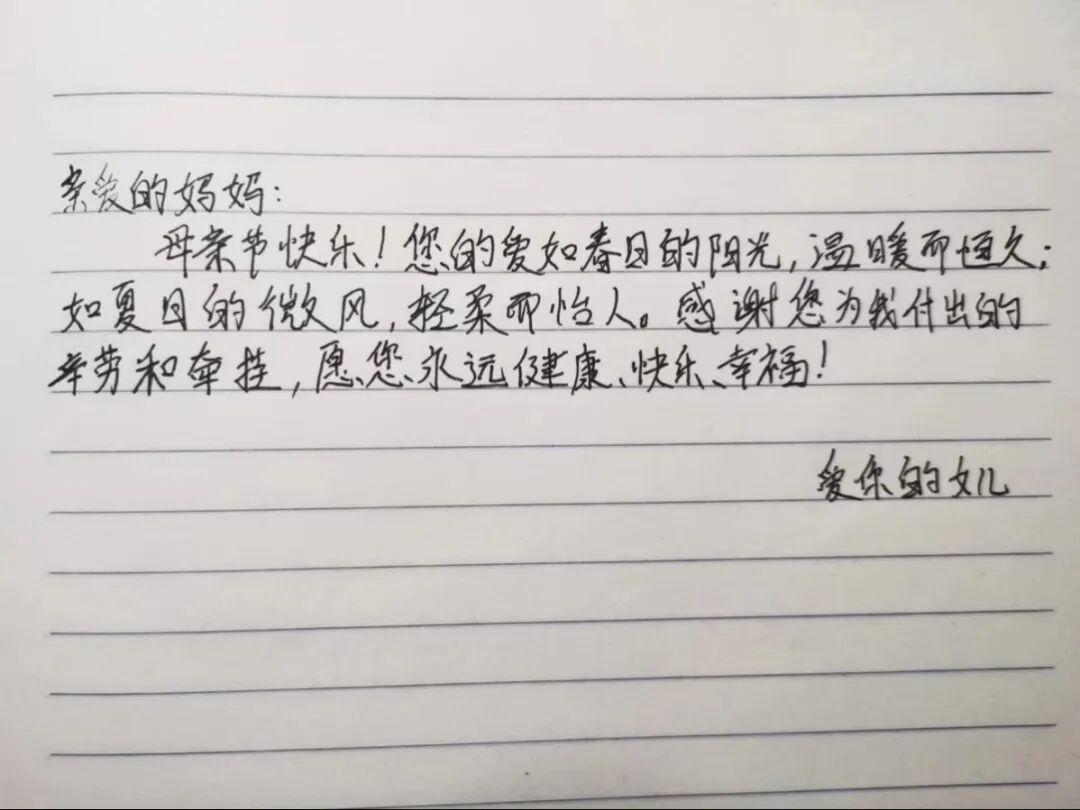 亲爱的妈妈:
母亲节快乐!您的爱如春日的阳光,温暖而恒久;
如夏日的微风,轻柔而怡人。感谢您为我付出的
辛劳和牵挂,愿您永远健康、快乐、幸福!
爱你的女儿